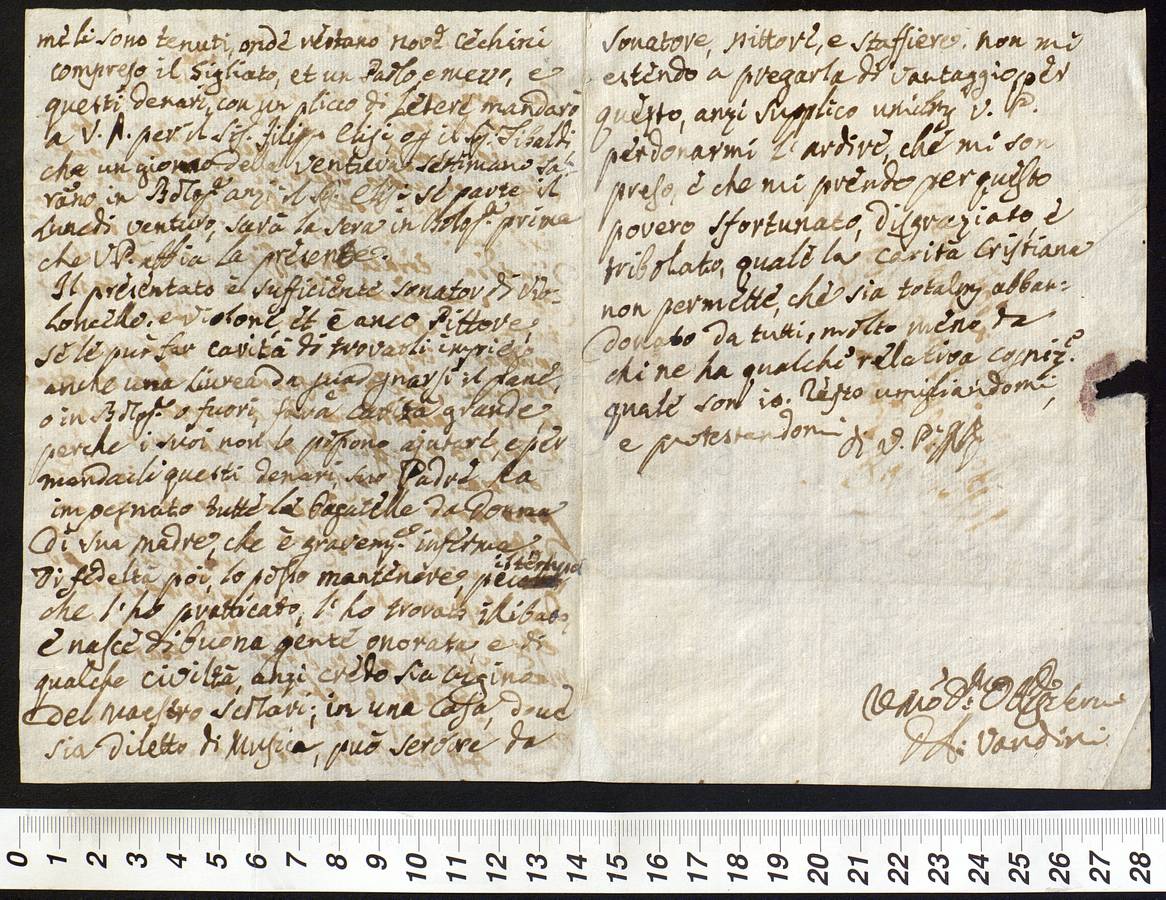 mi li sono tenuti, onde restano nove cechini
compreso il Gigliato, et un Paolo e mezzo, e
questi denari, con un plicco di letere mandarò
a V. P. per il Sig. Filip. Elisi, o il Sig. Tibaldi,
che un giorno della ventura setimana sa-
rano in Bolog.ª anzi il Sig. Elisi si parte il
Lunedì venturo, sarà la sera in Bolog.ª prima
che V P. abbia la presente.
Il presentato è sufficiente sonator di Vio-
loncello, e Violone et è anco Pittore,
se le può far carità di trovarli impiego
anche una Livrea da guadagnarsi il pane,
o in Bolog.ª o fuori, farà carità grande,
perche i suoi non lo possono ajutarl, e per
mandarli questi denari, suo Padre ha
impegnato tutte le bagatelle da Donna
di sua madre, che è gravem.e inferma.
Di fedeltà poi, lo posso mantenere, il tempo
che l'ho pratticato, l'ho trovato illibato,
e nasce di buona gente onorata, e di
qualche civiltà, anzi credo sia cugino
del Maestro Scolari; in una Casa, dove
sia diletto di Musica, può servire da
sonatore, pittore, e staffiere. non mi
estendo a pregarla di vantaggio per
questo, anzi supplico V. P.
perdonarmi l'ardire, che mi son
preso, e che mi prendo per questo
povero sfortunato, disgraziato e
tribolato, quale la carità Cristiana
non permette, che sia totalm. abban-
donato da tutti, molto meno da
chi ne ha qualche relativa cogniz.e
quale son io. Resto umigliandomi,
e protestandomi di V. P.
Servo
Vandini